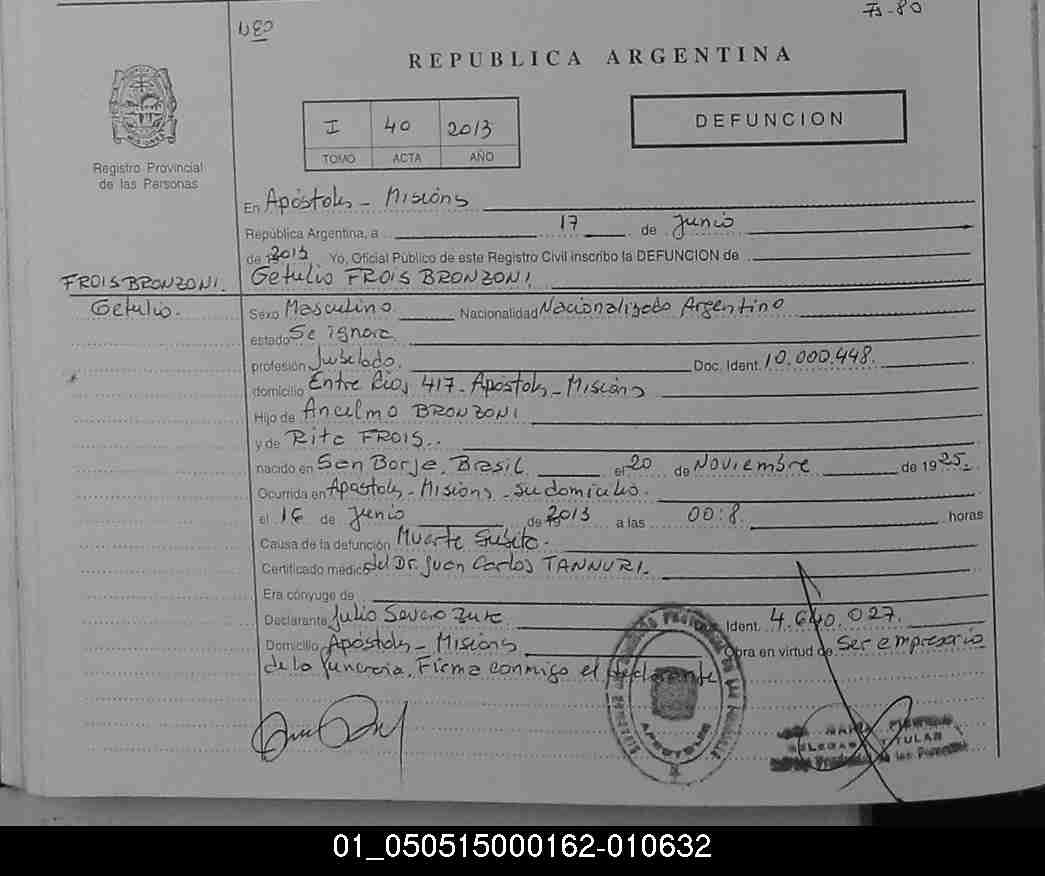 REPUBLICA ARGENTINA
I 40 2013
TOMO ACTA AÑO
DEFUNCION
Registro Provincial
de las Personas
En Apóstoles - Misiones
República Argentina, a 17 de Junio
de 2013 Yo, Oficial Público de este Registro Civil inscribo la DEFUNCION de
FROIS BRONZONI. Getulio FROIS BRONZONI
Getulio. Sexo Masculino Nacionalidad Nacionalizado Argentino
estado Se ignora
profesión Jubilado. Doc. Ident. 10.000.448.
domicilio Entre Rios 417 - Apóstoles - Misiones
Hijo de Ancelmo BRONZONI
y de Rita FROIS.
nacido en San Borja, Brasil el 20 de Noviembre de 1925.
Ocurrida en Apostoles - Misiones - su domicilio.
el 16 de Junio de 2013 a las 00:8 horas
Causa de la defunción Muerte Subita.
Certificado médico del Dr. Juan Carlos TANNURI.
Era cónyuge de
Declarante Julio Severo Ident. 4.640.027.
Domicilio Apóstoles - Misiones Obra en virtud de Ser empresario
de la funeraria. Firma conmigo el declarante
APOSTOLES
TITULAR
de las Personas
01_050515000162-010632